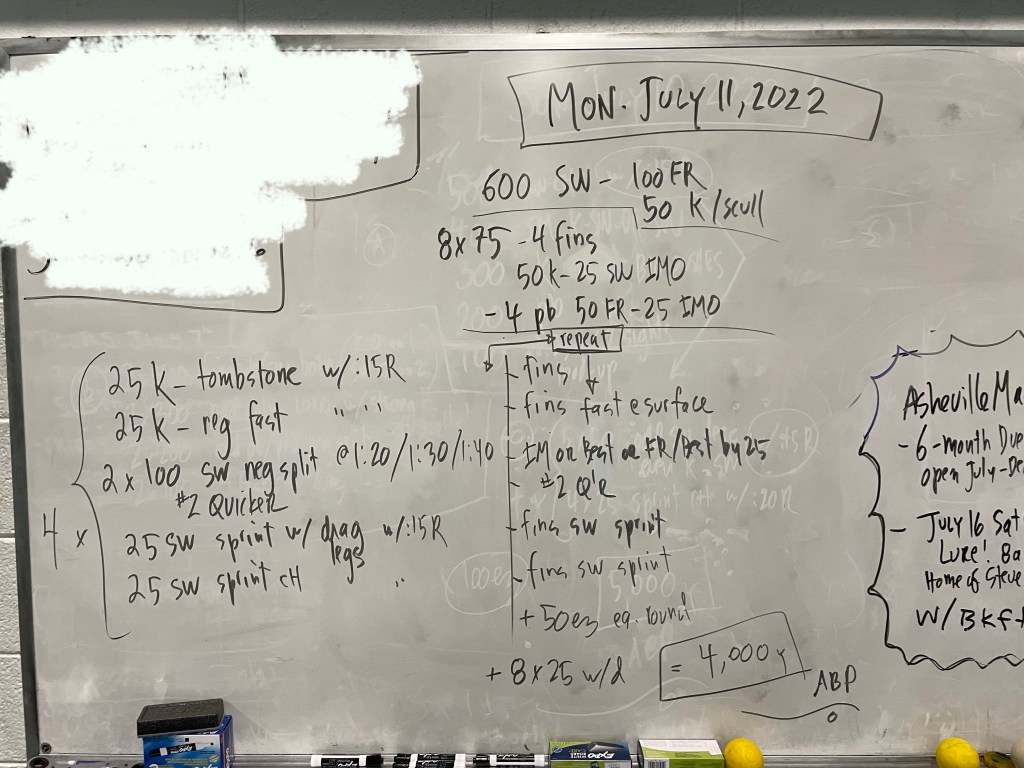 MON. JULY 11, 2022
600 SW - 100 FR
50 K/scull
8x75 - 4 fins
50 K - 25 SW IMO
- 4 pb 50 FR - 25 IMO
repeat
4 x
25 K - tombstone w/ :15R
25 K - reg fast " " "
2 x 100 sw neg split @ 1:20/1:30/1:40
#2 QUICKER
25 sw sprint w/ drag legs w/ :15R
25 sw sprint cH "
- fins
- fins fast e surface
- IM or Best or FR/Best by 25
- #2 Q'R
- fins sw sprint
- fins sw sprint
+ 50 ez ea. round
+ 8 x 25 w/d
= 4,000 Y
ABP
Asheville Ma
- 6-month Due
open July-De
- JULY 16 Sat
LUKE! 8a
Home of Steve
W/ BKft
EXPO